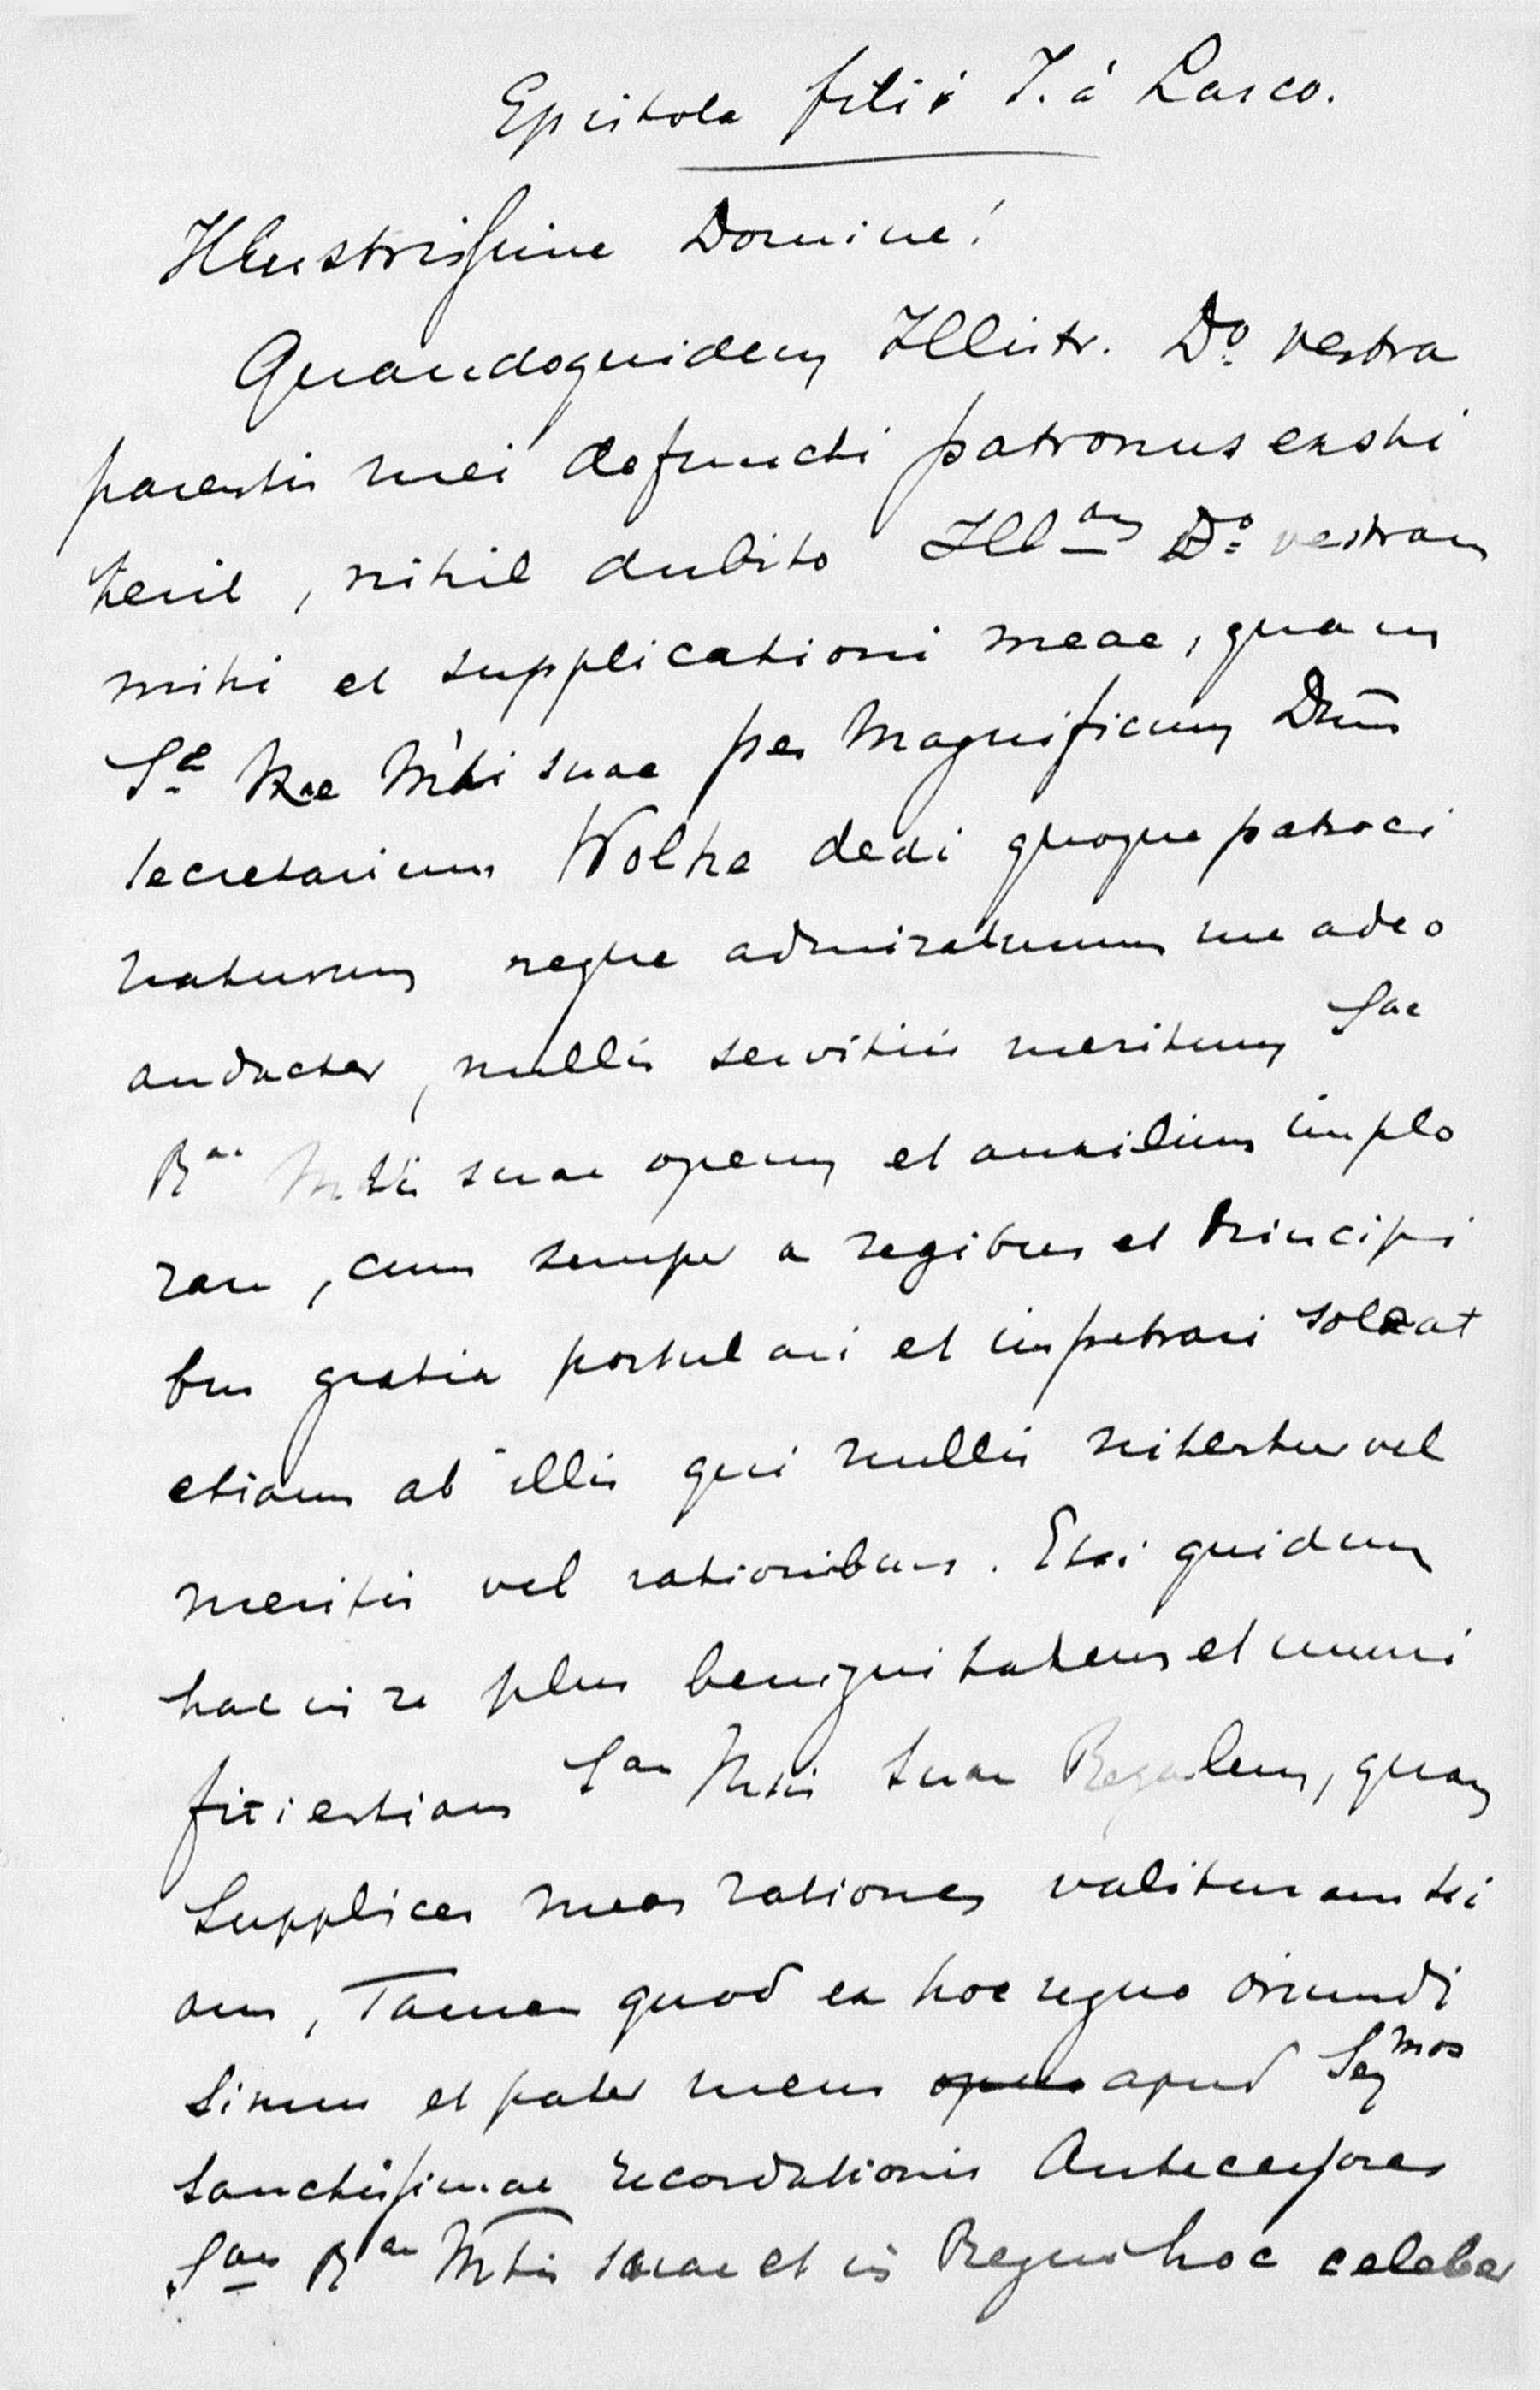 Epistola filii J. à Lasco.
Illustrissime Domine!
Quandoquidem Illustr. Do vestra
parentis mei defuncti patronus exsti
terit, nihil dubito Illam Do vestram
mihi et supplicationi meae, quam
Se Rae Mti suae per Magnificum Dnm
secretarium Wolke dedi quoque patroci
naturum neque admiraturum me adeo
audacter, nullis servitiis meritum Sae
Rae Mtis suae opem et auxilium implo
rare, cum semper a regibus et Principi
bus gratia postulari et impetrari soleat
etiam ab illis qui nullis nitentur vel
meritis vel rationibus. Etsi quidem
hac in re plus benignitatem et muni
ficientiam Sae Mtis suae Regalem, quam
supplices meas rationes valituram sci
am, Tamen quod ex hoc regno oriundi
simus et pater meus apud Sermos
sanctissimae recordationis Antecessores
Sae Rae Mtis suae et in Regni hoc celeber